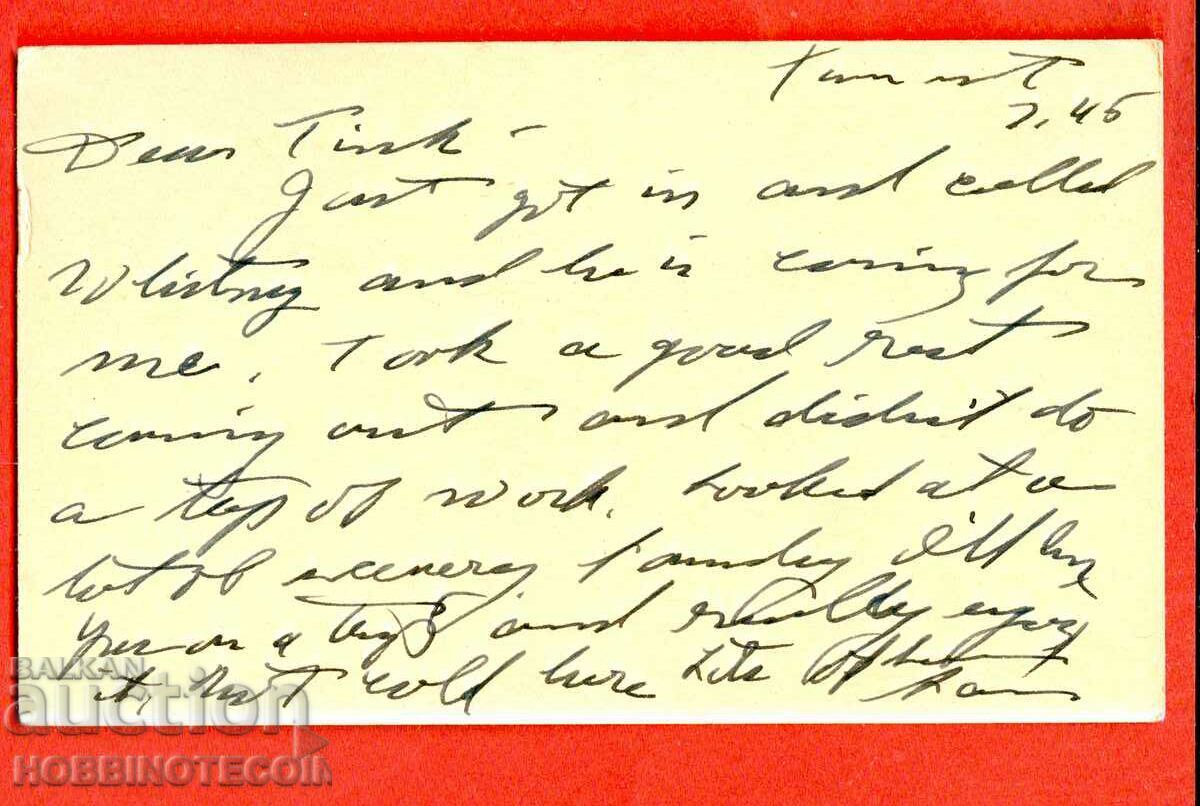 7.45
Dear Tink -
Just got in and called
Whitney and he is coming for
me. Took a good rest
coming out and didn't do
a tap of work. Looked at a
lot of scenery I'll
you on a trip and really enjoy
it. Not cold here Lots of
BALKAN
auction
HOBBINOTECOIN